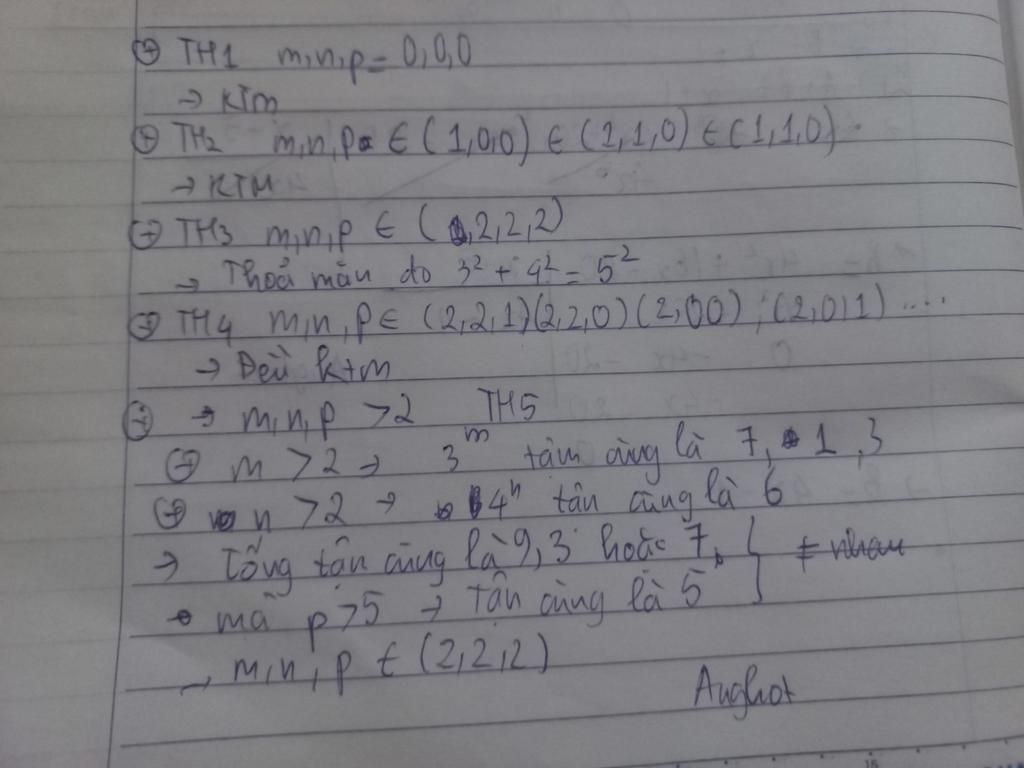 TH1 m,n,p = 0,0,0
→ KTM
TH2 m,n,p ∈ (1,0,0) ∈ (2,1,0) ∈ (1,1,0)
→ KTM
TH3 m,n,p ∈ (2,2,2)
→ Thoả mãn do 3² + 4² = 5²
TH4 m,n,p ∈ (2,2,1)(2,2,0)(2,00), (2,0,1) ....
→ Đều ktm
→ m,n,p >2 TH5
m >2 → 3^m tân cùng là 7, 1, 3
n >2 → 4^n tân cùng là 6
→ Tổng tân cùng là 9, 3 hoặc 7
mà p >5 → tân cùng là 5 } ≠ nhau
→ m,n,p ∈ (2,2,2)